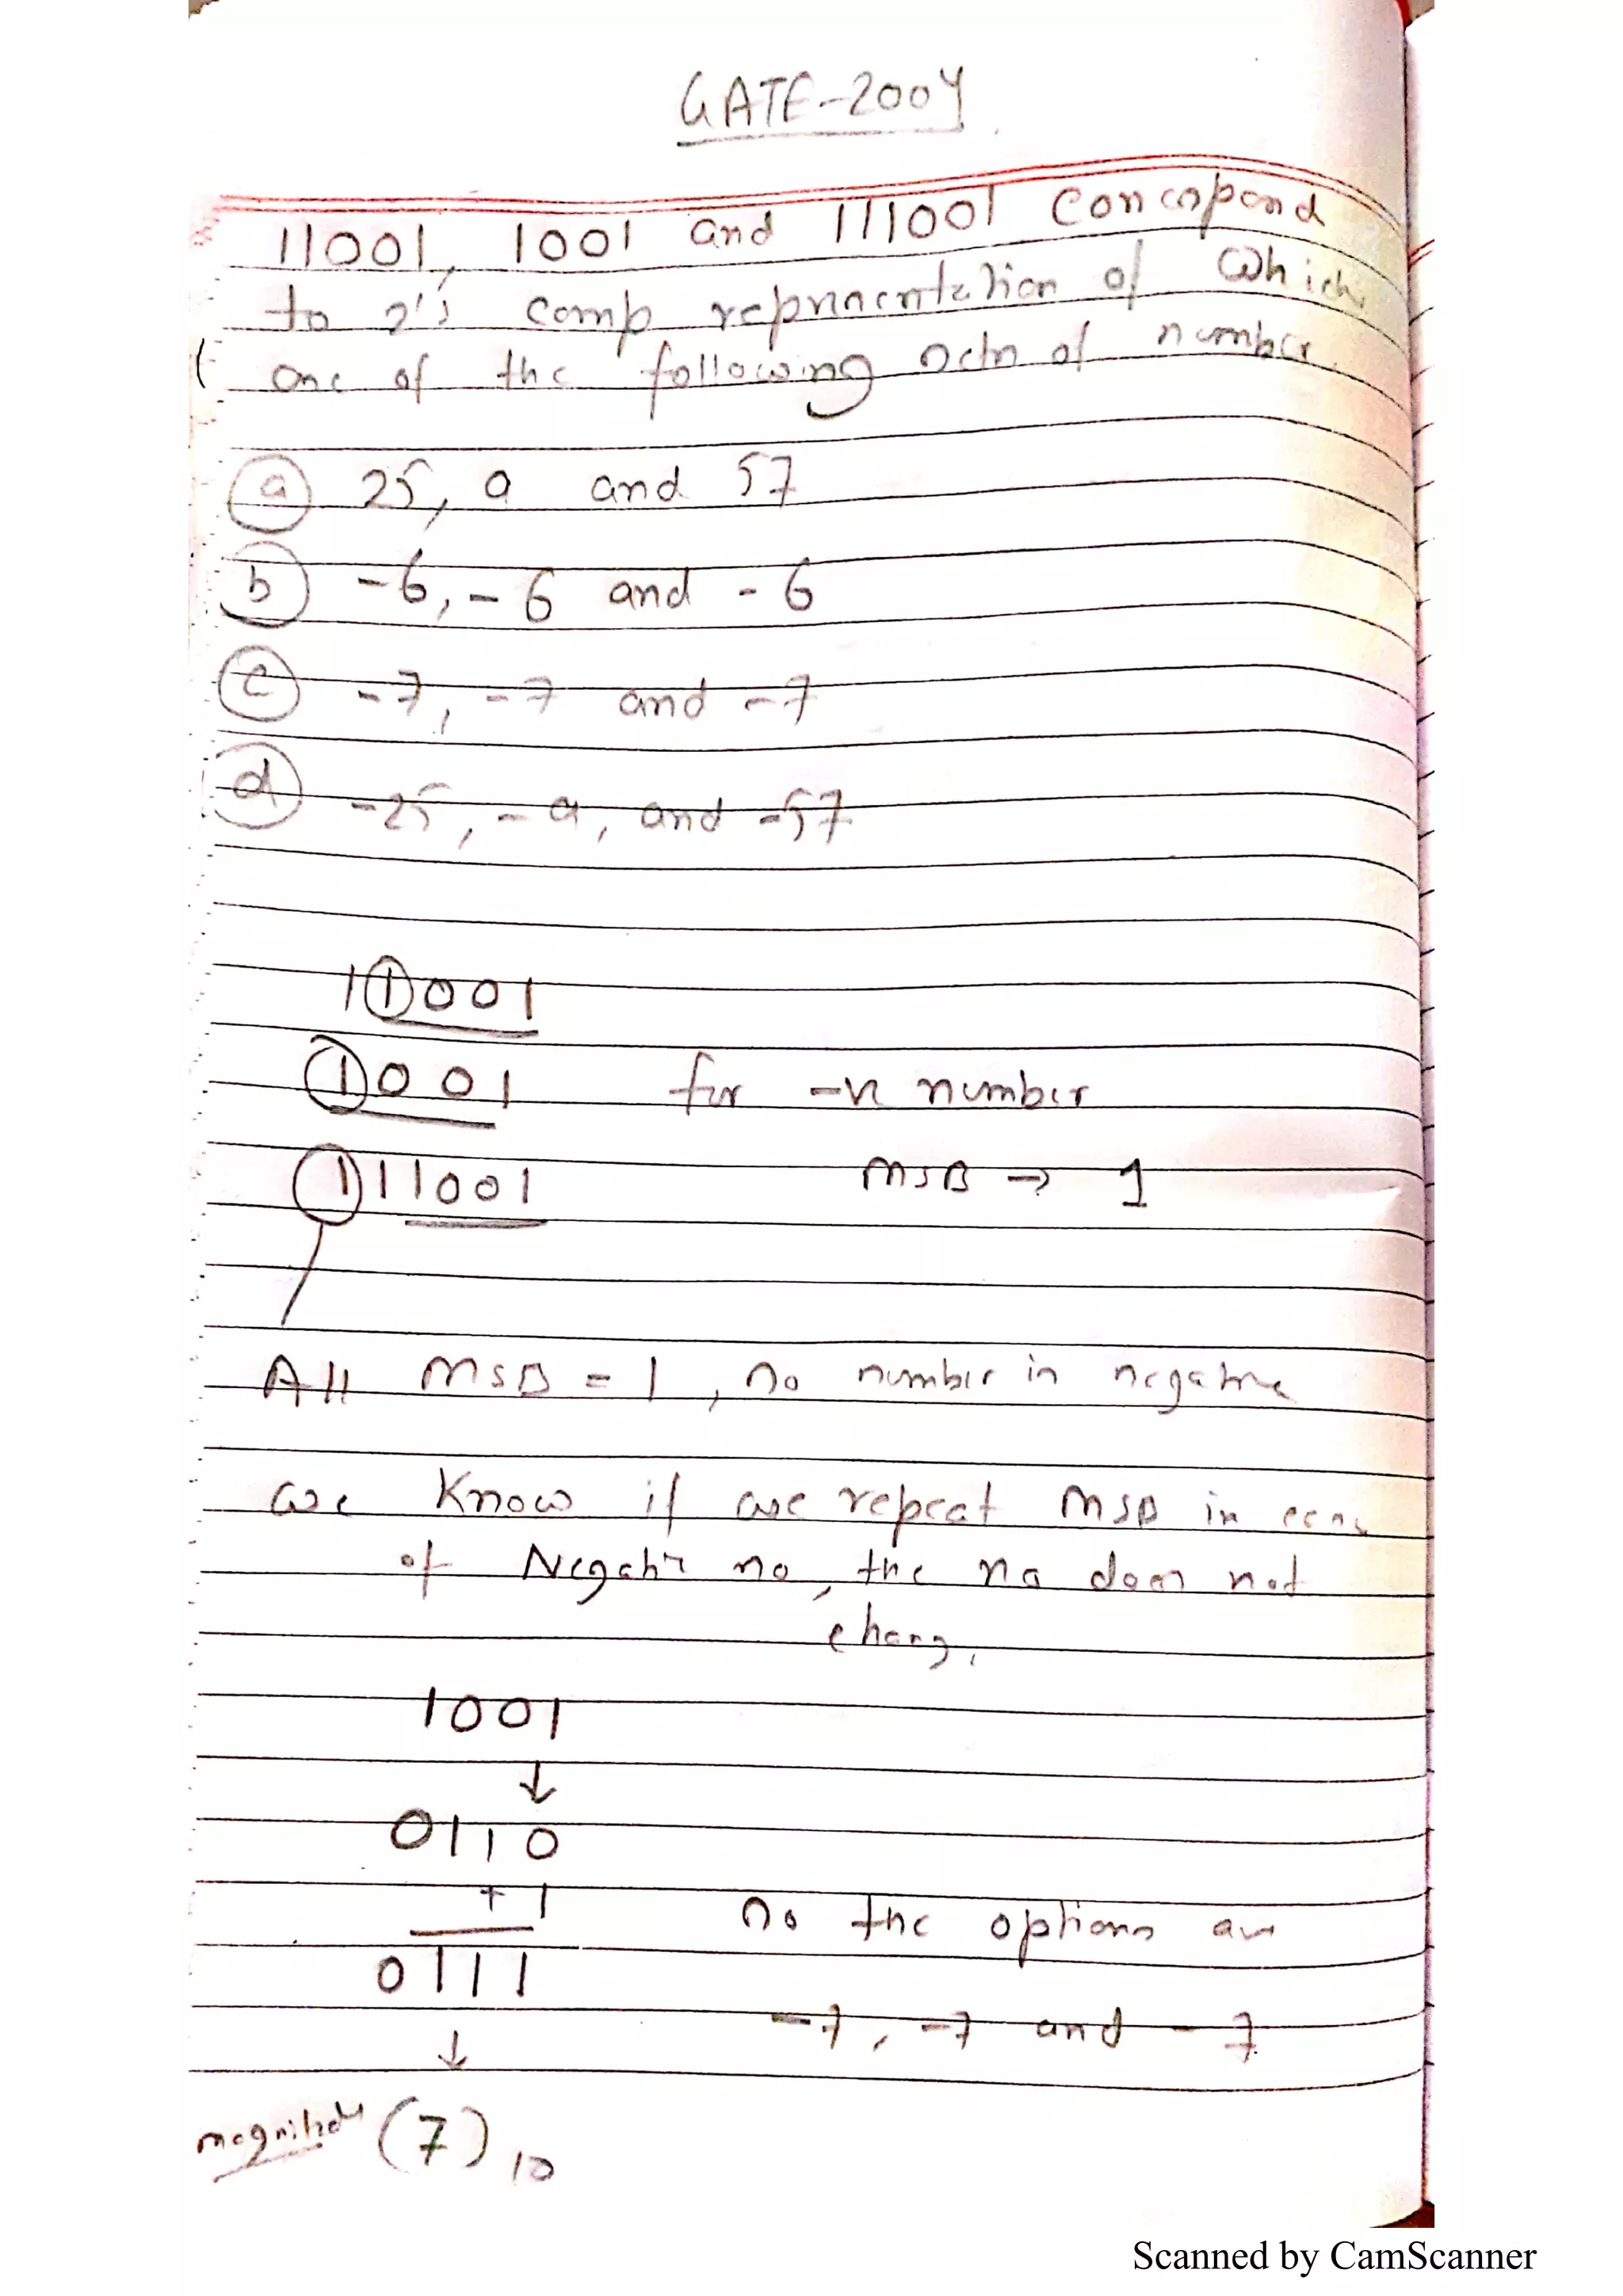 GATE-2004
11001, 1001 and 111001 correspond
to 2's comp representation of which
one of the following sets of number
(a) 25, 9 and 57
(b) -6, -6 and -6
(c) -7, -7 and -7
(d) -25, -9, and -57
11001
1001 for -ve number
111001 MSB → 1
All MSB = 1, so number in negative
we know if we repeat MSB in case
of Negative no, the no does not
chang.
1001
↓
0110
+ 1 so the options are
0111
-7, -7 and -7
↓
magnitude (7)10
Scanned by CamScanner